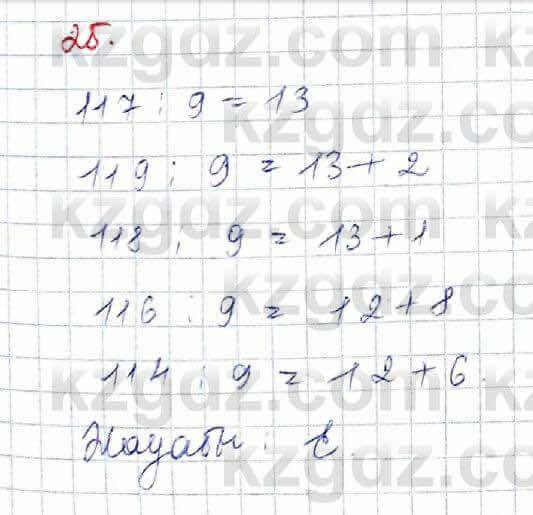 25.
117 : 9 = 13
119 : 9 = 13 + 2
118 : 9 = 13 + 1
116 : 9 = 12 + 8
114 : 9 = 12 + 6.
Жауабы : E.
kzgdz.com